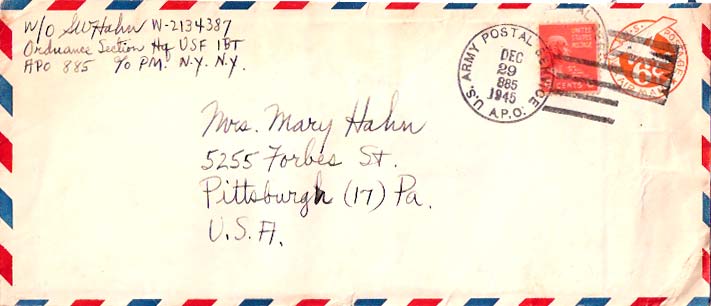 W/O SW Hahn W-2134387
Ordnance Section Hq USF IBT
APO 885 c/o P.M. N.Y. N.Y.
U.S. ARMY POSTAL SERVICE
DEC
29
885
1945
A.P.O.
UNITED STATES
POSTAGE
CENTS
U.S. POSTAGE
6¢
AIR MAIL
Mrs. Mary Hahn
5255 Forbes St.
Pittsburgh (17) Pa.
U.S.A.